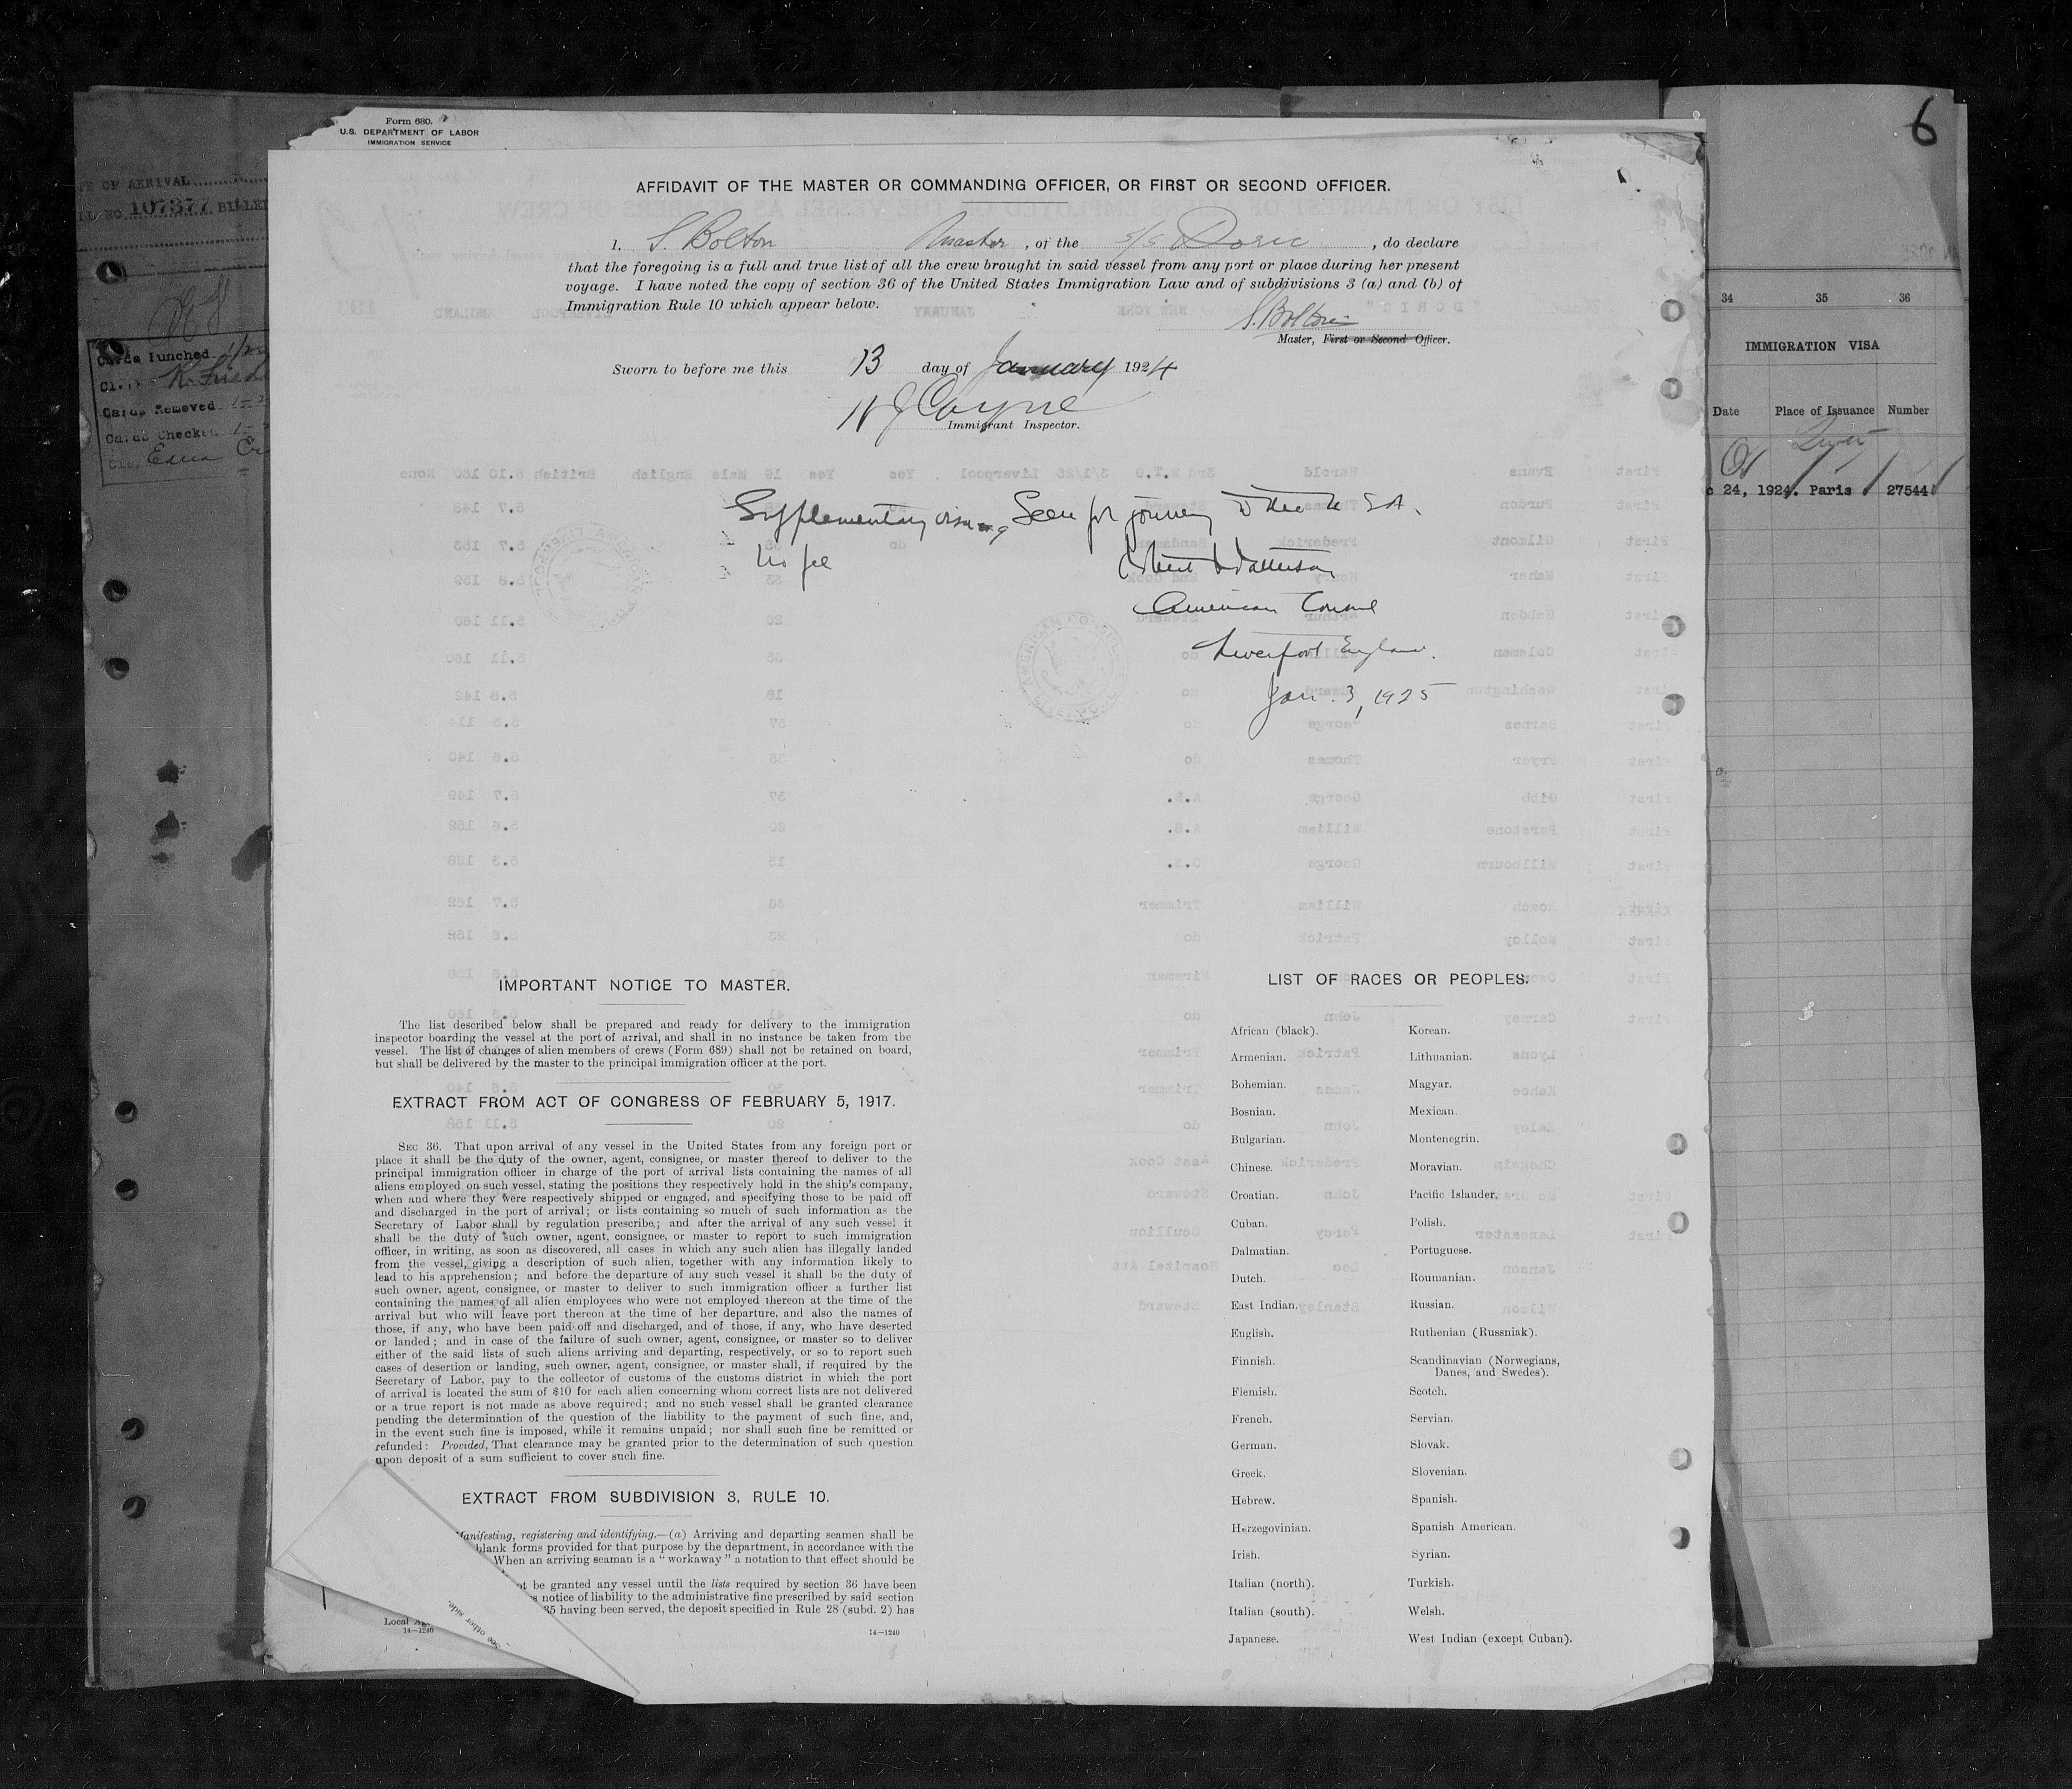 Form 680.
U.S. DEPARTMENT OF LABOR
IMMIGRATION SERVICE
AFFIDAVIT OF THE MASTER OR COMMANDING OFFICER, OR FIRST OR SECOND OFFICER.
I, S. Bolton Master, of the S/S Doric, do declare
that the foregoing is a full and true list of all the crew brought in said vessel from any port or place during her present
voyage. I have noted the copy of section 36 of the United States Immigration Law and of subdivisions 3 (a) and (b) of
Immigration Rule 10 which appear below.
S. Bolton
Master, First or Second Officer.
Sworn to before me this 13 day of January 1924
Coyne
Immigrant Inspector.
Supplementary visa Seen for journey to the U.S.A.
No fee
American Consul
Liverpool England.
Jan. 3, 1925
IMPORTANT NOTICE TO MASTER.
The list described below shall be prepared and ready for delivery to the immigration
inspector boarding the vessel at the port of arrival, and shall in no instance be taken from the
vessel. The list of changes of alien members of crews (Form 689) shall not be retained on board,
but shall be delivered by the master to the principal immigration officer at the port.
EXTRACT FROM ACT OF CONGRESS OF FEBRUARY 5, 1917.
SEC 36. That upon arrival of any vessel in the United States from any foreign port or
place it shall be the duty of the owner, agent, consignee, or master thereof to deliver to the
principal immigration officer in charge of the port of arrival lists containing the names of all
aliens employed on such vessel, stating the positions they respectively hold in the ship's company,
when and where they were respectively shipped or engaged, and specifying those to be paid off
and discharged in the port of arrival; or lists containing so much of such information as the
Secretary of Labor shall by regulation prescribe; and after the arrival of any such vessel it
shall be the duty of such owner, agent, consignee, or master to report to such immigration
officer, in writing, as soon as discovered, all cases in which any such alien has illegally landed
from the vessel, giving a description of such alien, together with any information likely to
lead to his apprehension; and before the departure of any such vessel it shall be the duty of
such owner, agent, consignee, or master to deliver to such immigration officer a further list
containing the names of all alien employees who were not employed thereon at the time of the
arrival but who will leave port thereon at the time of her departure, and also the names of
those, if any, who have been paid off and discharged, and of those, if any, who have deserted
or landed; and in case of the failure of such owner, agent, consignee, or master so to deliver
either of the said lists of such aliens arriving and departing, respectively, or so to report such
cases of desertion or landing, such owner, agent, consignee, or master shall, if required by the
Secretary of Labor, pay to the collector of customs of the customs district in which the port
of arrival is located the sum of $10 for each alien concerning whom correct lists are not delivered
or a true report is not made as above required; and no such vessel shall be granted clearance
pending the determination of the question of the liability to the payment of such fine, and,
in the event such fine is imposed, while it remains unpaid; nor shall such fine be remitted or
refunded: Provided, That clearance may be granted prior to the determination of such question
upon deposit of a sum sufficient to cover such fine.
EXTRACT FROM SUBDIVISION 3, RULE 10.
Manifesting, registering and identifying.—(a) Arriving and departing seamen shall be
blank forms provided for that purpose by the department, in accordance with the
When an arriving seaman is a "workaway" a notation to that effect should be
be granted any vessel until the lists required by section 36 have been
notice of liability to the administrative fine prescribed by said section
35 having been served, the deposit specified in Rule 28 (subd. 2) has
Local
14—1240
see other side.
14—1240
LIST OF RACES OR PEOPLES.
African (black).
Armenian.
Bohemian.
Bosnian.
Bulgarian.
Chinese.
Croatian.
Cuban.
Dalmatian.
Dutch.
East Indian.
English.
Finnish.
Flemish.
French.
German.
Greek.
Hebrew.
Herzegovinian.
Irish.
Italian (north).
Italian (south).
Japanese.
Korean.
Lithuanian.
Magyar.
Mexican.
Montenegrin.
Moravian.
Pacific Islander.
Polish.
Portuguese.
Roumanian.
Russian.
Ruthenian (Russniak).
Scandinavian (Norwegians,
Danes, and Swedes).
Scotch.
Servian.
Slovak.
Slovenian.
Spanish.
Spanish American.
Syrian.
Turkish.
Welsh.
West Indian (except Cuban).
OF ARRIVAL
NO 107377
Cards Punched
Cards Removed
Cards Checked
Edna
6
34 35 36
IMMIGRATION VISA
Date Place of Issuance Number
24, 1924. Paris 27544